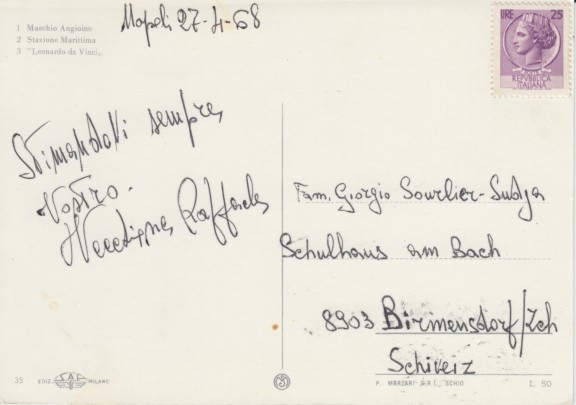 Napoli 27-4-68
1 Maschio Angioino
2 Stazione Marittima
3 "Leonardo da Vinci„
LIRE 25
REPVBBLICA
ITALIANA
Stimandovi sempre
Vostro.
Raffaele
Fam. Giorgio Sourlier-Sudja
Schulhaus am Bach
8903 Birmensdorf/Zch
Schiveiz
35 EDIZ. S.A.F. MILANO
P. MARZARI S.R.L., SCHIO L. 50